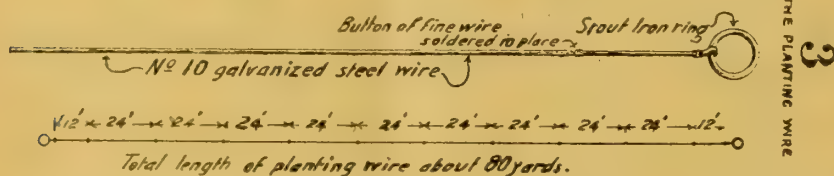 Button of fine wire
soldered in place
Stout Iron ring
Nº 10 galvanized steel wire
12' 24' 24' 24' 24' 24' 24' 24' 24' 24' 12'
Total length of planting wire about 80 yards.
3
THE PLANTING WIRE